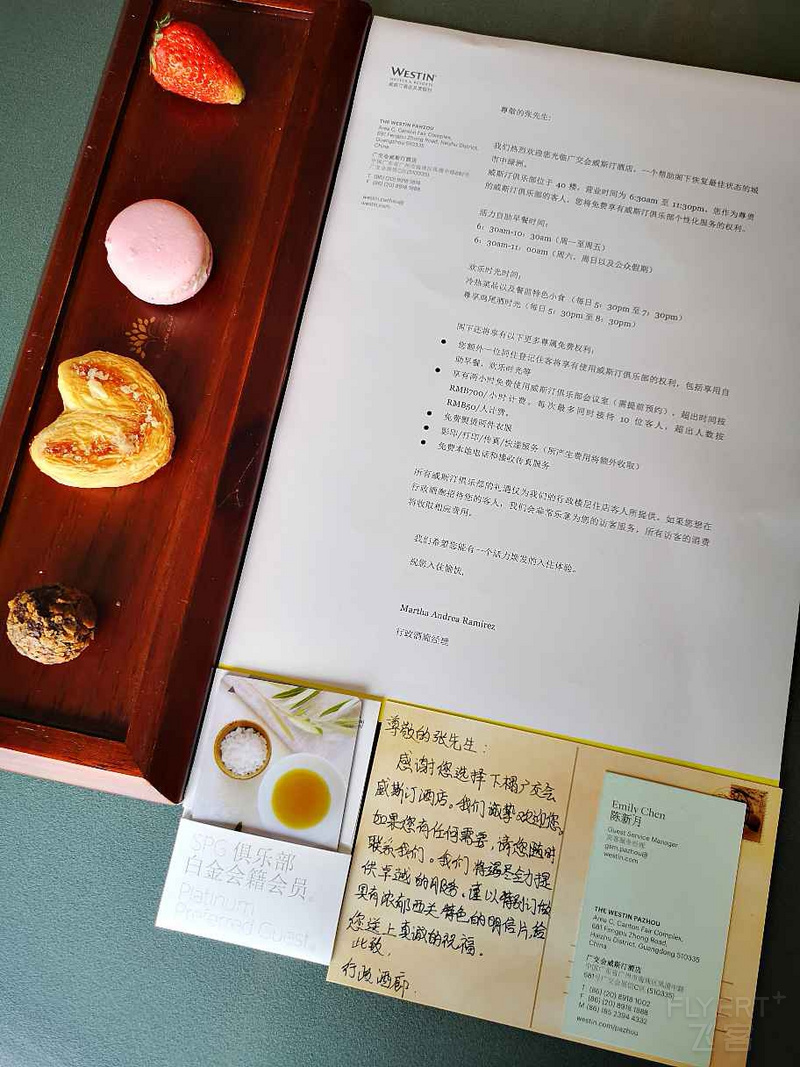 WESTIN
HOTELS & RESORTS
威斯汀酒店及度假村
THE WESTIN PAZHOU
Area C, Canton Fair Complex,
681 Fengpu Zhong Road, Haizhu District,
Guangzhou 510335
China
广交会威斯汀酒店
T (86) (20) 8918 1818
F (86) (20) 8918 1988
westin.pazhou@
westin.com
尊敬的张先生:
我们热烈欢迎您光临广交会威斯汀酒店，一个帮助阁下恢复最佳状态的城
市中绿洲。
威斯汀俱乐部位于 40 楼，营业时间为 6:30am 至 11:30pm，您作为尊贵
的威斯汀俱乐部的客人，您将免费享有威斯汀俱乐部个性化服务的权利。
活力自助早餐时间:
6: 30am-10: 30am（周一至周五）
6: 30am-11: 00am（周六、周日以及公众假期）
欢乐时光时间:
冷热菜品以及餐前特色小食（每日 5: 30pm 至 7: 30pm）
尊享鸡尾酒时光（每日 5: 30pm 至 8: 30pm）
阁下还将享有以下更多尊属免费权利:
● 您额外一位同住登记住客将享有使用威斯汀俱乐部的权利，包括享用自
助早餐、欢乐时光等
● 享有两小时免费使用威斯汀俱乐部会议室（需提前预约），超出时间按
RMB700/小时计费，每次最多同时接待 10 位客人，超出人数按
RMB50/人计费。
● 免费熨烫两件衣服
● 影印/打印/传真/快递服务（所产生费用将额外收取）
● 免费本地电话和接收传真服务
所有威斯汀俱乐部的礼遇仅为我们的行政楼层住店客人所提供，如果您想在
行政酒廊招待您的客人，我们会非常乐意为您的访客服务，所有访客的消费
将收取相应费用。
我们希望您能有一个活力焕发的入住体验。
祝您入住愉快，
Martha Andrea Ramirez
行政酒廊经理
SPG 俱乐部
白金会籍会员
Platinum
Preferred Guest
尊敬的张先生：
感谢您选择下榻广交会
威斯汀酒店。我们诚挚欢迎您。
如果您有任何需要，请您随时
联系我们。我们将竭尽全力提
供卓越的服务。谨以特别订做
具有浓郁西关特色的明信片给
您送上真诚的祝福。
此致，
行政酒廊.
Emily Chen
陈新月
Guest Service Manager
宾客服务经理
gsm.pazhou@
westin.com
THE WESTIN PAZHOU
Area C, Canton Fair Complex,
681 Fengpu Zhong Road,
Haizhu District, Guangdong 510335
China
广交会威斯汀酒店
中国广东省广州市海珠区凤浦中路
681号广交会展馆C区 (510335)
T (86) (20) 8918 1002
F (86) (20) 8918 1988
M (86) 185 2394 4332
westin.com/pazhou
FLYERT+
飞客